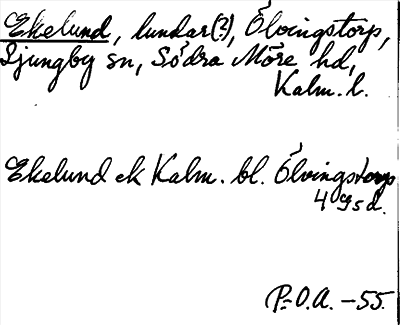 Ekelund, lundar(?), Ölvingstorp,
Ljungby sn, Södra Möre hd,
Kalm. l.
Ekelund ek Kalm. bl. Ölvingstorp
4 gsd.
P.O.A. -55.